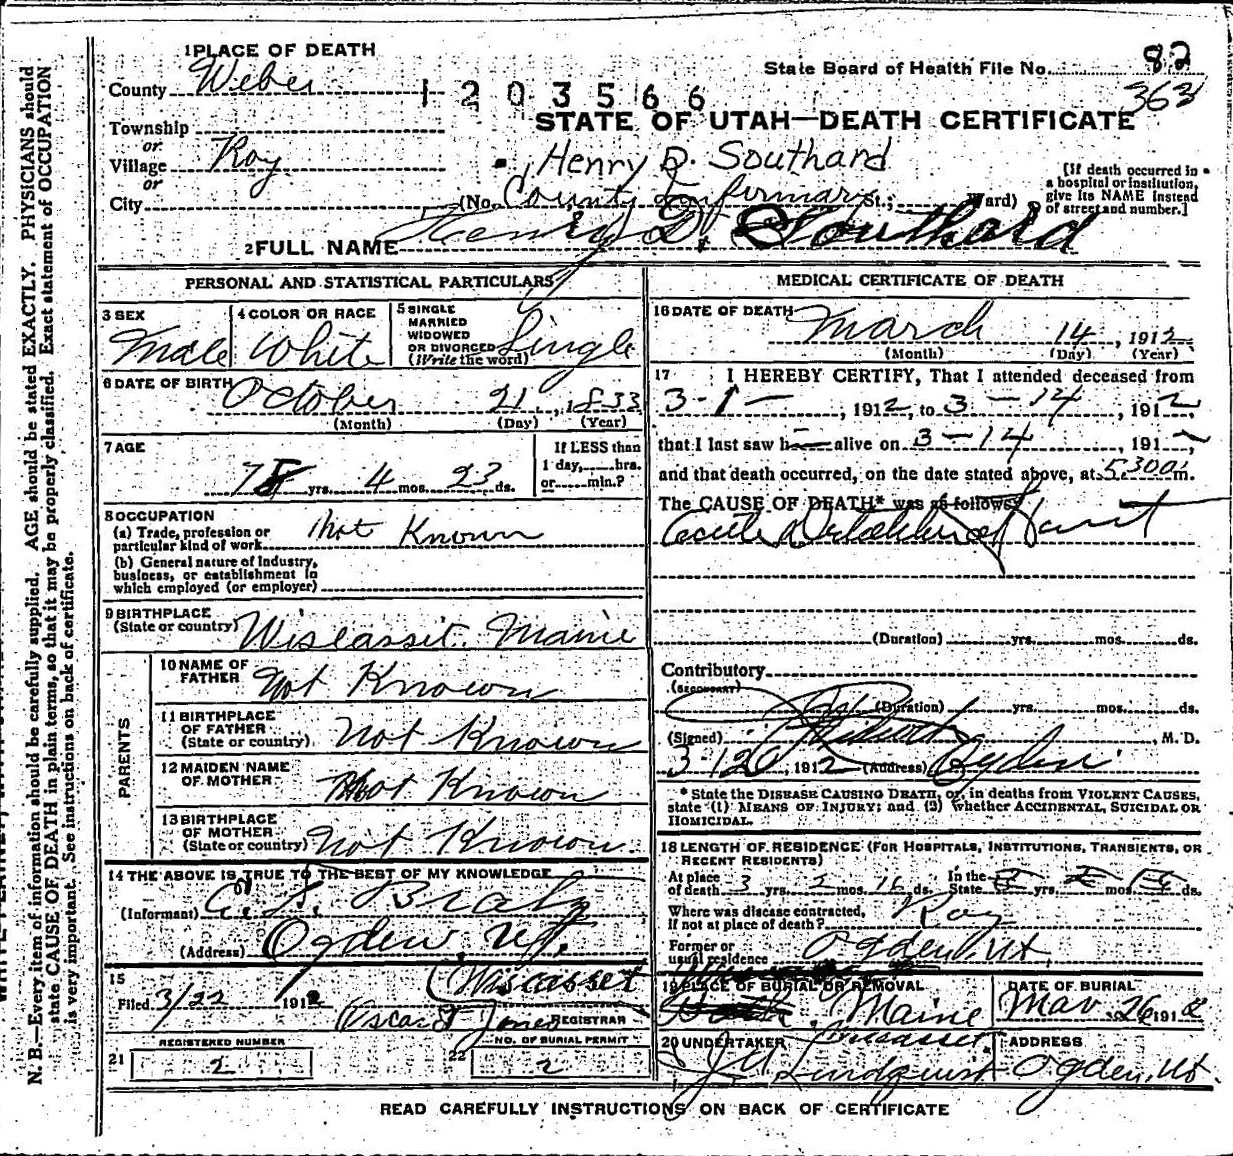 1 PLACE OF DEATH
County Weber
1203566
State Board of Health File No. 82
363
STATE OF UTAH—DEATH CERTIFICATE
Township
or
Village Roy
or
City
Henry D. Southard
(No. County Infirmary St.; Ward)
[If death occurred in
a hospital or institution,
give its NAME instead
of street and number.]
2 FULL NAME Henry D. Southard
PERSONAL AND STATISTICAL PARTICULARS
3 SEX
Male
4 COLOR OR RACE
White
5 SINGLE
MARRIED
WIDOWED
OR DIVORCED
(Write the word)
Single
6 DATE OF BIRTH
October 21, 1833
(Month) (Day) (Year)
7 AGE
78 yrs. 4 mos. 23 ds.
If LESS than
1 day, hrs.
or min.?
8 OCCUPATION
(a) Trade, profession or
particular kind of work Not Known
(b) General nature of Industry,
business, or establishment in
which employed (or employer)
9 BIRTHPLACE
(State or country) Wiscassit. Maine
PARENTS
10 NAME OF
FATHER Not Known
11 BIRTHPLACE
OF FATHER
(State or country) Not Known
12 MAIDEN NAME
OF MOTHER Not Known
13 BIRTHPLACE
OF MOTHER
(State or country) Not Known
14 THE ABOVE IS TRUE TO THE BEST OF MY KNOWLEDGE
(Informant)
(Address) Ogden, Ut.
15
Filed 3/22 1912
Oscar Jones REGISTRAR
REGISTERED NUMBER
21 2
NO. OF BURIAL PERMIT
22 2
MEDICAL CERTIFICATE OF DEATH
16 DATE OF DEATH
March 14, 1912
(Month) (Day) (Year)
17 I HEREBY CERTIFY, That I attended deceased from
3-1-, 1912, to 3-14, 1912,
that I last saw h alive on 3-14, 191
and that death occurred, on the date stated above, at 5.30 a.m.
The CAUSE OF DEATH* was as follows:
Heart
(Duration) yrs. mos. ds.
Contributory
(SECONDARY)
(Duration) yrs. mos. ds.
(Signed) , M. D.
1912 (Address) Ogden
* State the DISEASE CAUSING DEATH, or, in deaths from VIOLENT CAUSES,
state (1) MEANS OF INJURY; and (2) whether ACCIDENTAL, SUICIDAL OR
HOMICIDAL.
18 LENGTH OF RESIDENCE (FOR HOSPITALS, INSTITUTIONS, TRANSIENTS, OR
RECENT RESIDENTS)
At place
of death 3 yrs. 2 mos. 16 ds. In the
State yrs. mos. ds.
Where was disease contracted,
if not at place of death? Roy
Former or
usual residence Ogden. Ut.
19 PLACE OF BURIAL OR REMOVAL
Wiscasset
Maine
DATE OF BURIAL
Mar 26 191
20 UNDERTAKER
Lindquist
ADDRESS
Ogden, Ut.
READ CAREFULLY INSTRUCTIONS ON BACK OF CERTIFICATE
N. B.—Every item of information should be carefully supplied. AGE should be stated EXACTLY. PHYSICIANS should
state CAUSE OF DEATH in plain terms, so that it may be properly classified. Exact statement of OCCUPATION
is very important. See instructions on back of certificate.